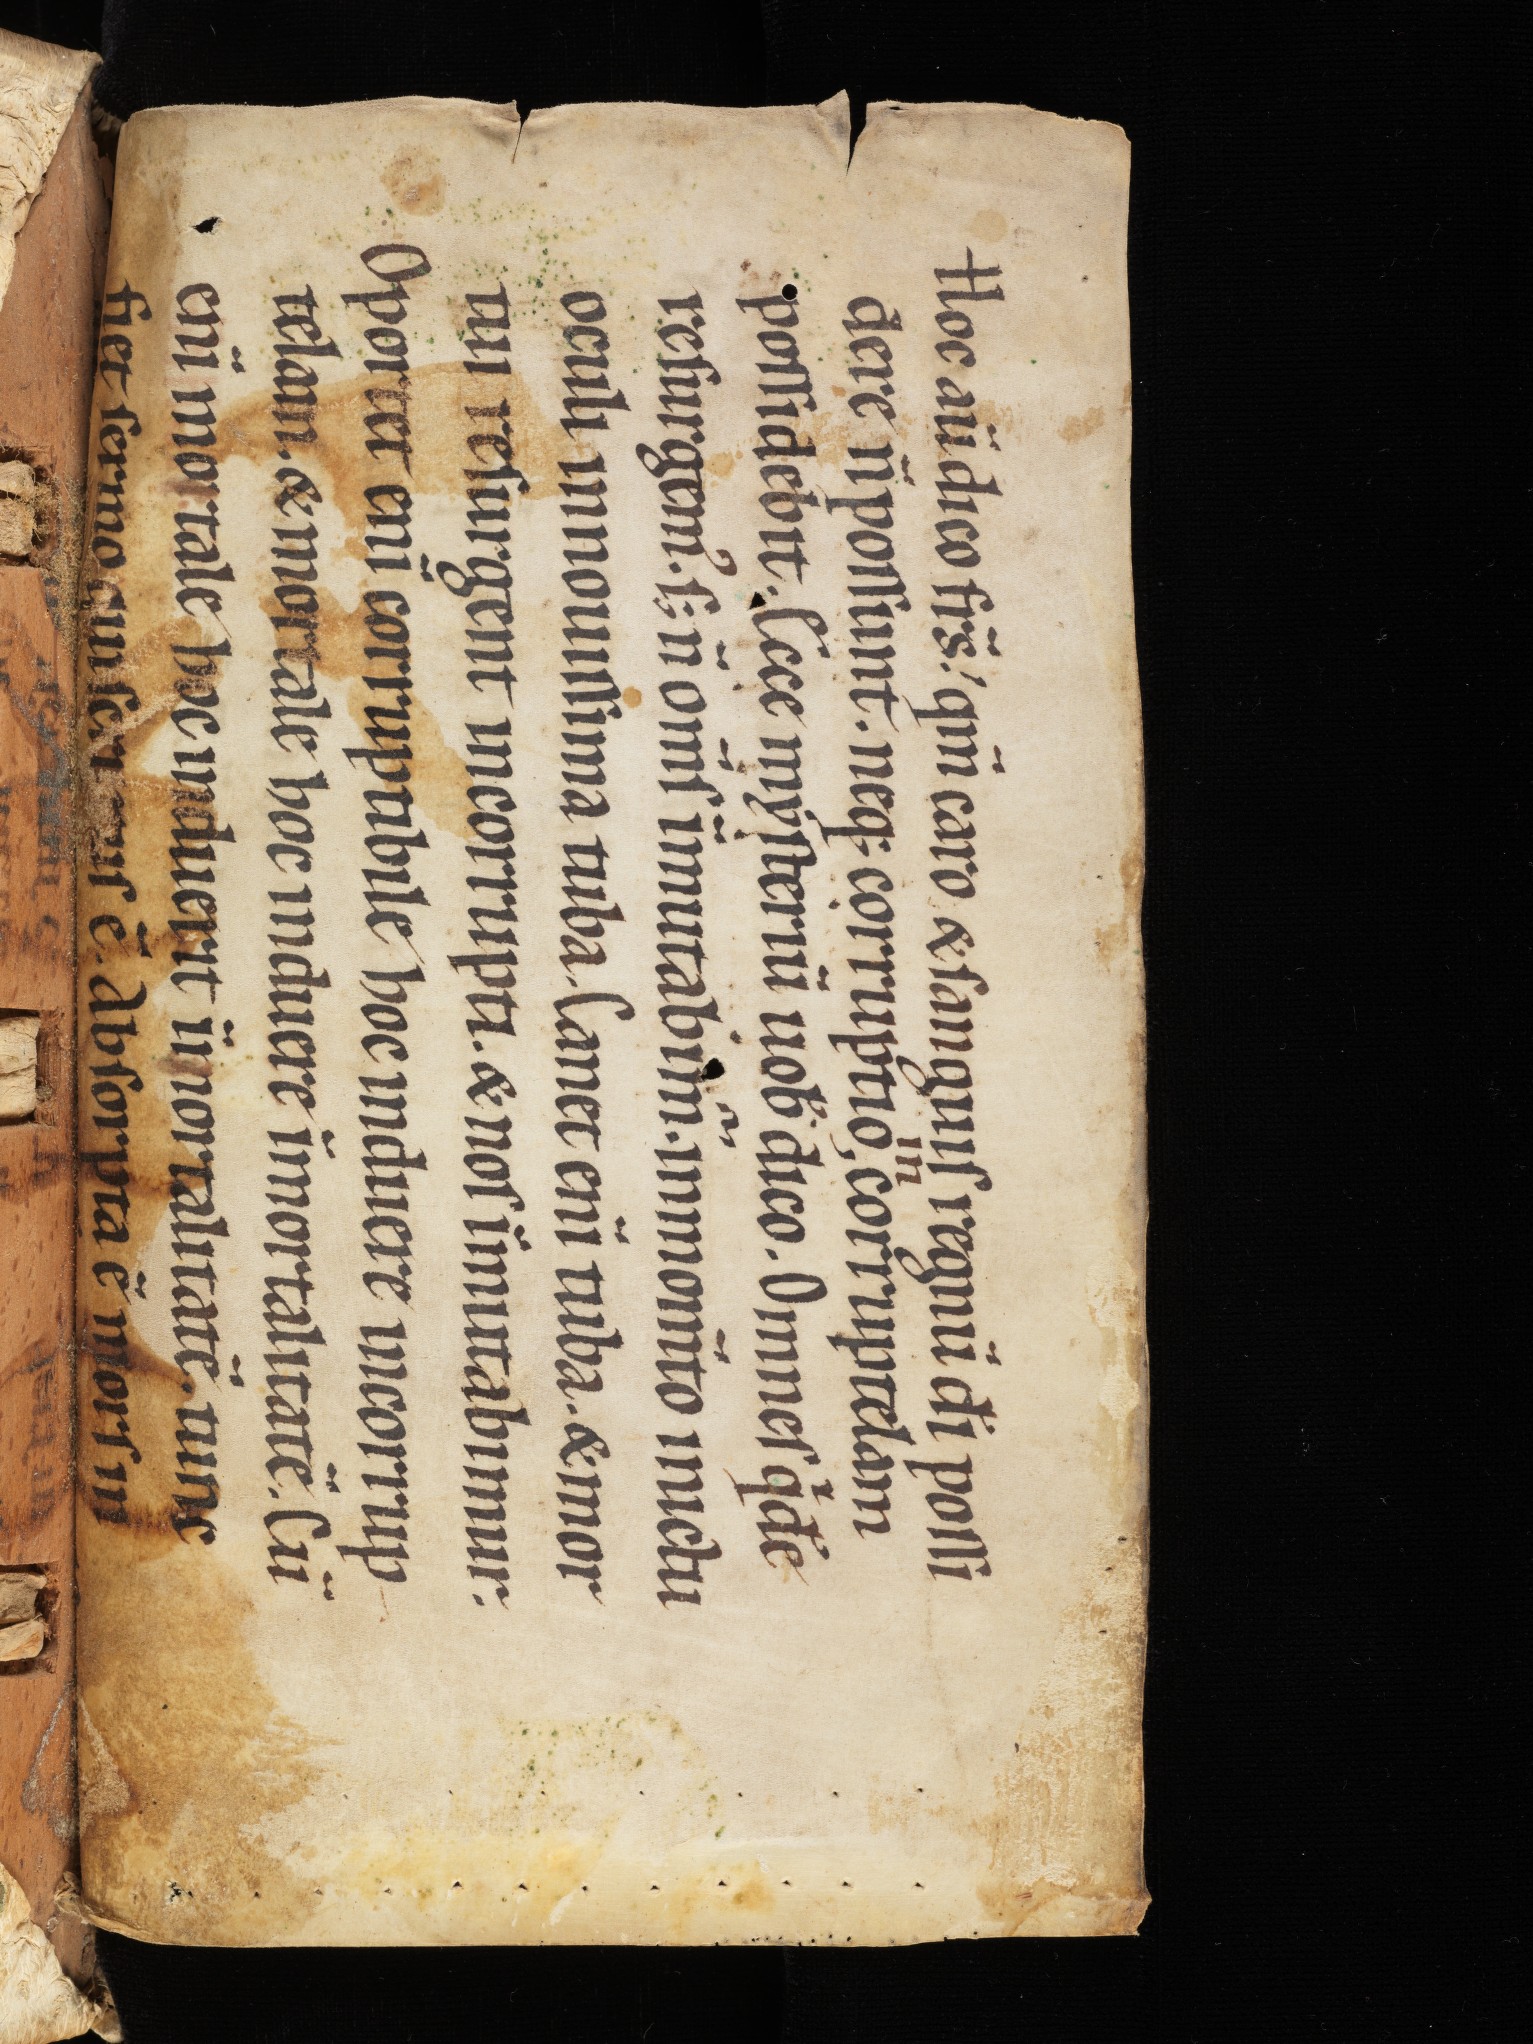 Hoc aū dico frs̄. qm̄ caro & sanguis regnū dī possi
dere n̄ possunt. neq; corruptio incorruptelam
possidebit. Ecce mysteriū uob̄ dico. Omnes qdē
resurgem̄. s; n̄ om̄s īmutabim̄. inmom̄to inictu
oculi innouissima tuba. Canet enī tuba. & mor
tui resurgent incorrupti. & nos īmutabimur.
Oportet enī corruptibile hoc induere incorrup
telam. & mortale hoc induere īmortalitatē. Cū
enī mortale hoc induerit īmortalitatē. tunc
fiet sermo qui scriptus ē. Absorpta ē mors in